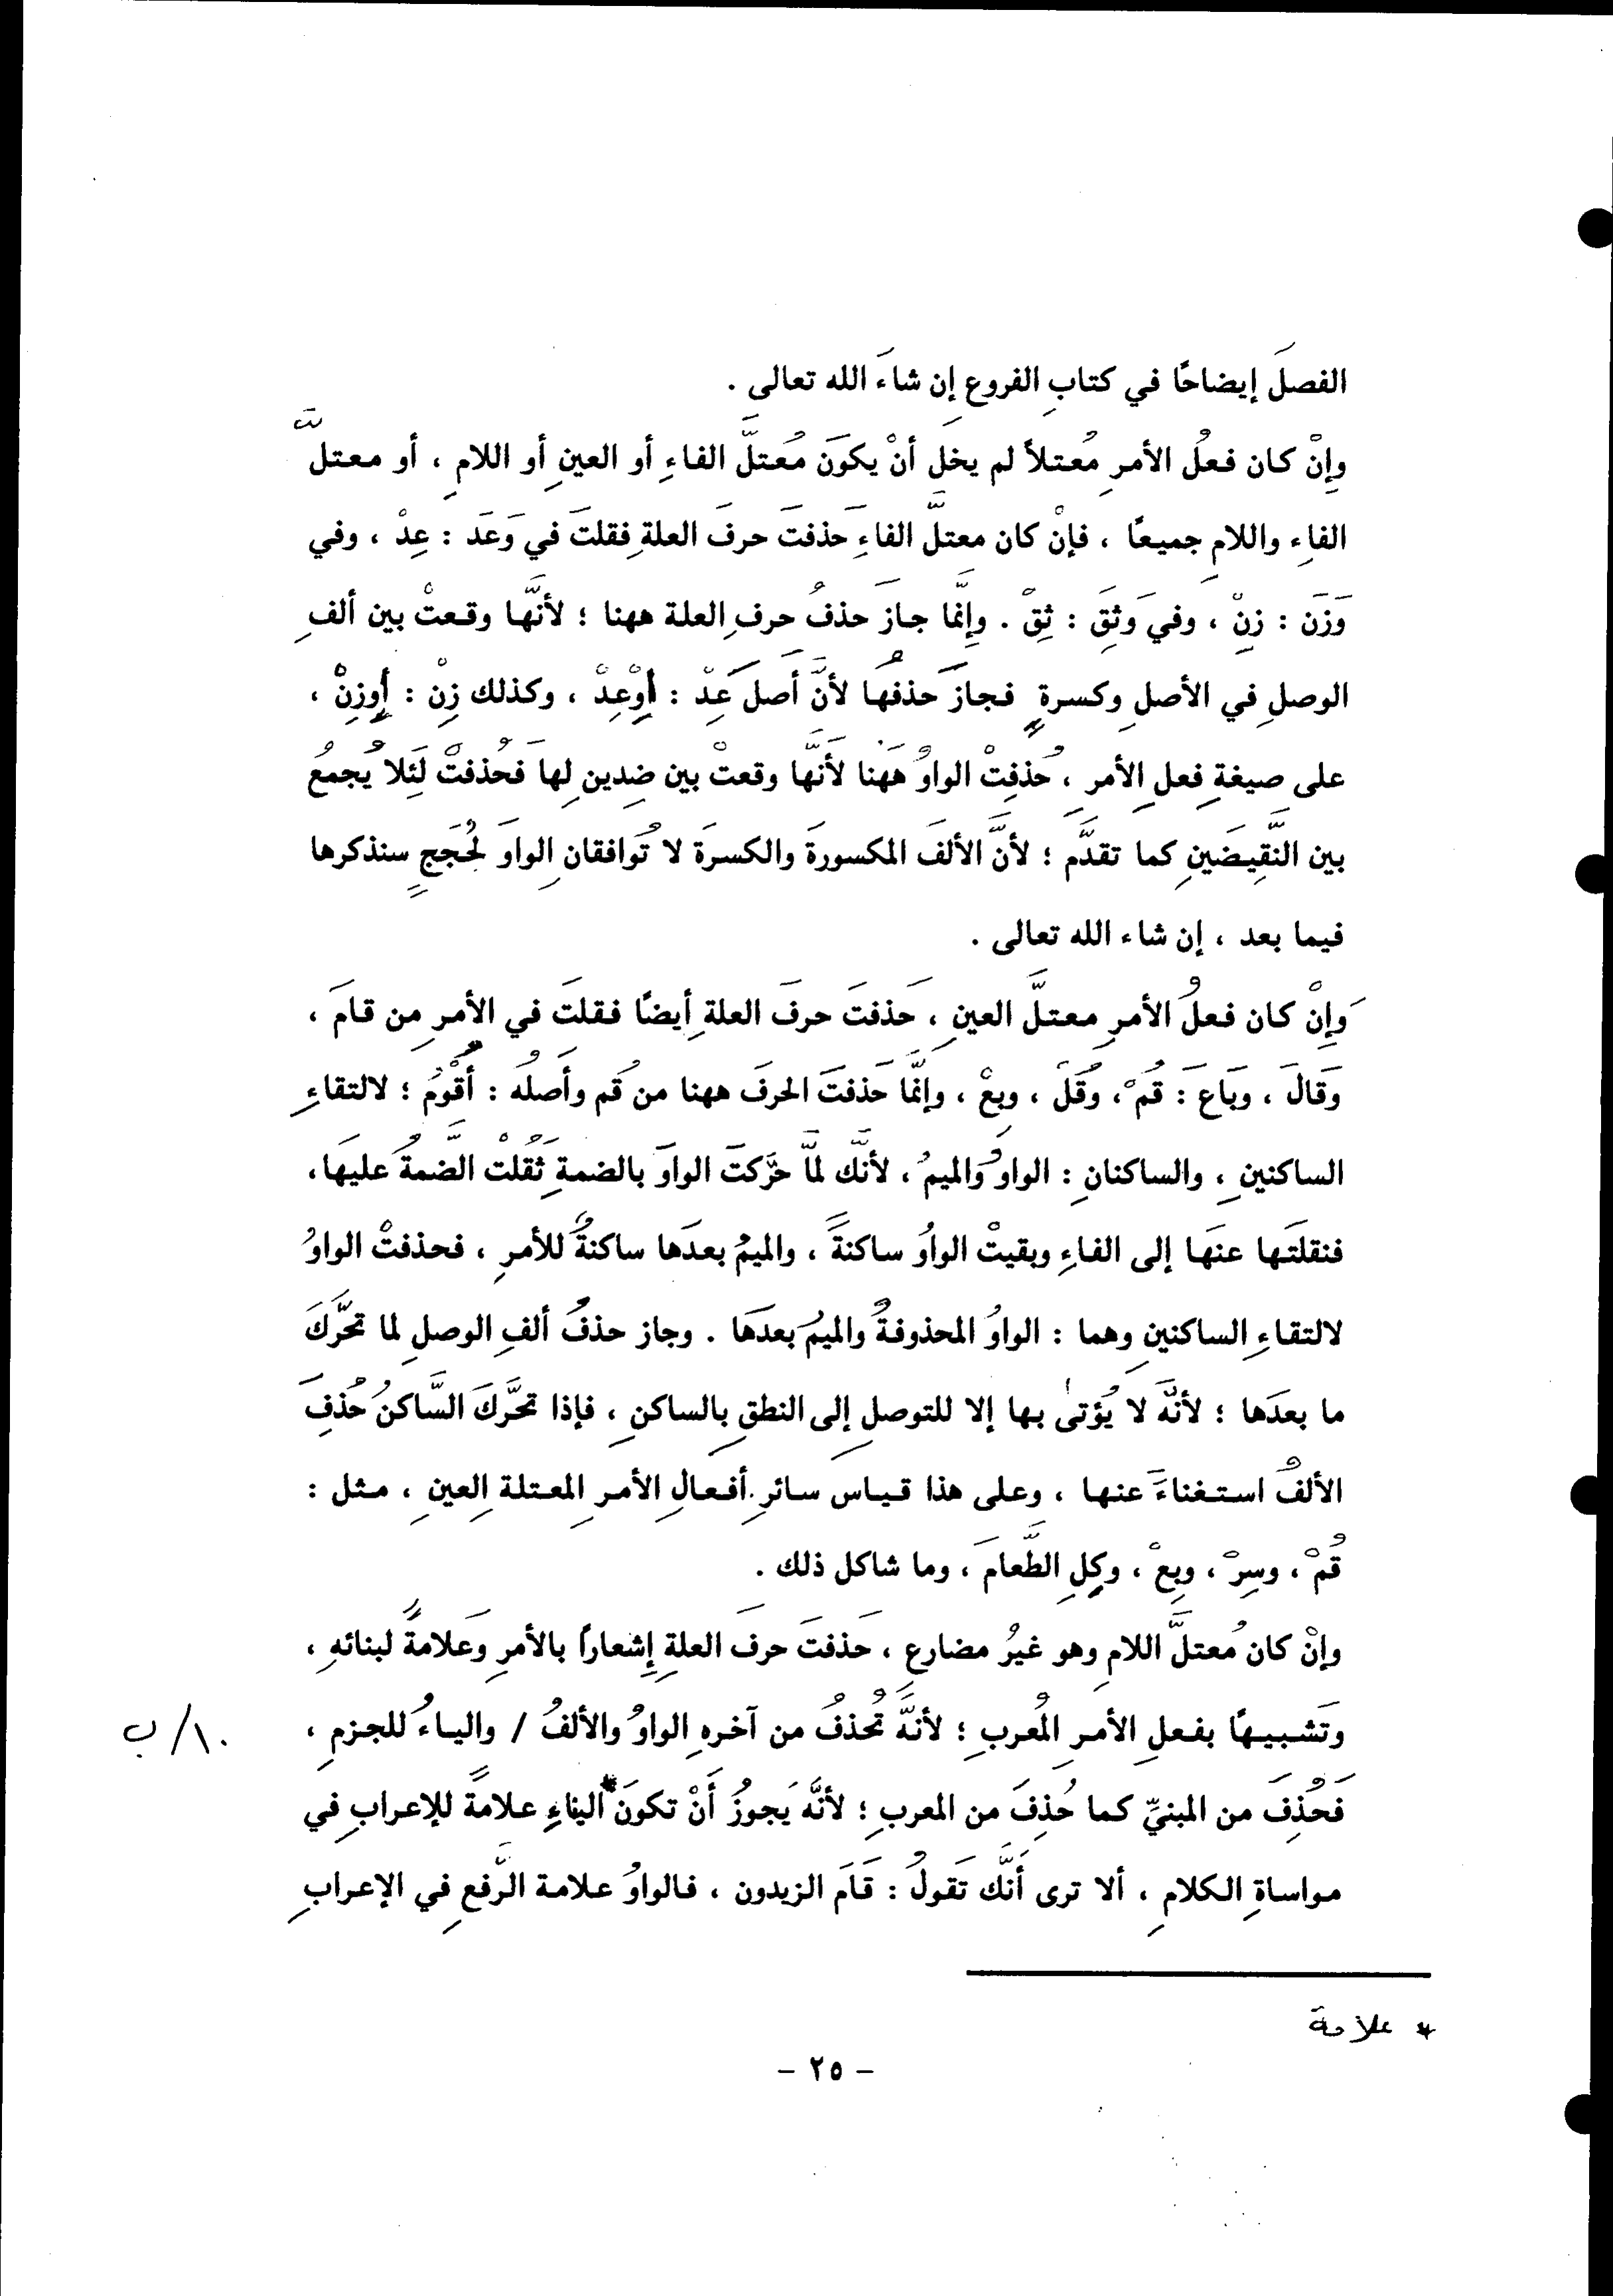 الفصلَ إيضاحًا في كتابِ الفروعِ إن شاءَ الله تعالى .
وإِنْ كان فعلُ الأمرِ مُعتلاً لم يخلِ أنْ يكونَ مُعتلَّ الفاءِ أو العينِ أو اللامِ ، أو معتلَّ
الفاءِ واللامِ جميعًا ، فإنْ كان معتلَّ الفاءِ حَذفتَ حرفَ العلةِ فقلتَ في وَعَد : عِدْ ، وفي
وَزَن : زِنْ ، وفي وَثِقَ : ثِقْ . وإنَّما جازَ حذفُ حرفِ العلة ههنا ؛ لأنَّها وقعتْ بين ألفِ
الوصلِ في الأصلِ وكسرةٍ فجازَ حذفُها لأنَّ أصلَ عِدْ : اِوْعِدْ ، وكذلك زِنْ : إِوزِنْ ،
على صيغةِ فعلِ الأمرِ ، حُذفِتْ الواوُ هَهنا لأنَّها وقعتْ بين ضِدينِ لها فَحُذفتْ لَئِلا يُجمعُ
بين النَّقِيضَينِ كما تقدَّم ؛ لأنَّ الألفَ المكسورةَ والكسرةَ لا تُوافقانِ الواوَ لحُجَجٍ سنذكرها
فيما بعد ، إن شاء الله تعالى .
وَإِنْ كان فعلُ الأمرِ معتلَّ العينِ ، حَذفتَ حرفَ العلةِ أيضًا فقلتَ في الأمرِ مِن قامَ ،
وَقالَ ، وبَاعَ : قُمْ ، وُقَلْ ، وبِعْ ، وإنَّما حَذفتَ الحرفَ ههنا من قُم وأَصلُه : أُقْوُمُ ؛ لالتقاءِ
الساكنينِ ، والساكنانِ : الواوُ وَالميمُ ، لأنَّك لمَّا حرَّكتَ الواوَ بالضمةِ ثَقُلتْ الضَّمةُ عليهَا ،
فنقلتَها عنهَا إلى الفاءِ وبقيتْ الواوُ ساكنةً ، والميمُ بعدَها ساكنةٌ للأمرِ ، فحذفتْ الواوُ
لالتقاءِ الساكنينِ وهما : الواوُ المحذوفةُ والميمُ بعدَهَا . وجاز حذفُ ألفِ الوصلِ لما تحَّركَ
ما بعدَها ؛ لأنَّهَ لا يُؤتىٰ بها إلا للتوصلِ إلى النطقِ بالساكنِ ، فإذا تحَّركَ السَّاكنُ حُذفِ
الألفُ استغناءَ عنها ، وعلى هذا قياس سائرِ أفعالِ الأمرِ المعتلة العينِ ، مثل :
قُمْ ، وسِرْ ، وبِعْ ، وكِلِ الطَّعامَ ، وما شاكل ذلك .
وإنْ كان مُعتلَّ اللامِ وهو غيرُ مضارعٍ ، حَذفتَ حرفَ العلةِ إشعارًا بالأمرِ وَعَلامةً لبنائهِ ،
وَتَشبيهًا بفعلِ الأمرِ المُعربِ ؛ لأنَّهُ تُحذفُ من آخرهِ الواوُ والألفُ / والياءُ للجزمِ ،
فَحُذِفَ من المبنيِّ كما حُذِفَ من المعربِ ؛ لأنَّهُ يَجوزُ أَنْ تكونَ* البناءِ علامةً للإعرابِ في
مواساةِ الكلامِ ، ألا ترى أَنَّك تَقولُ : قَامَ الزيدون ، فالواوُ علامة الرَّفعِ في الإعرابِ
١٠/ب
* علامة
- ٢٥ -